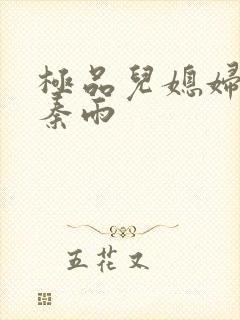 極品兒媳婦
秦雨
五花又